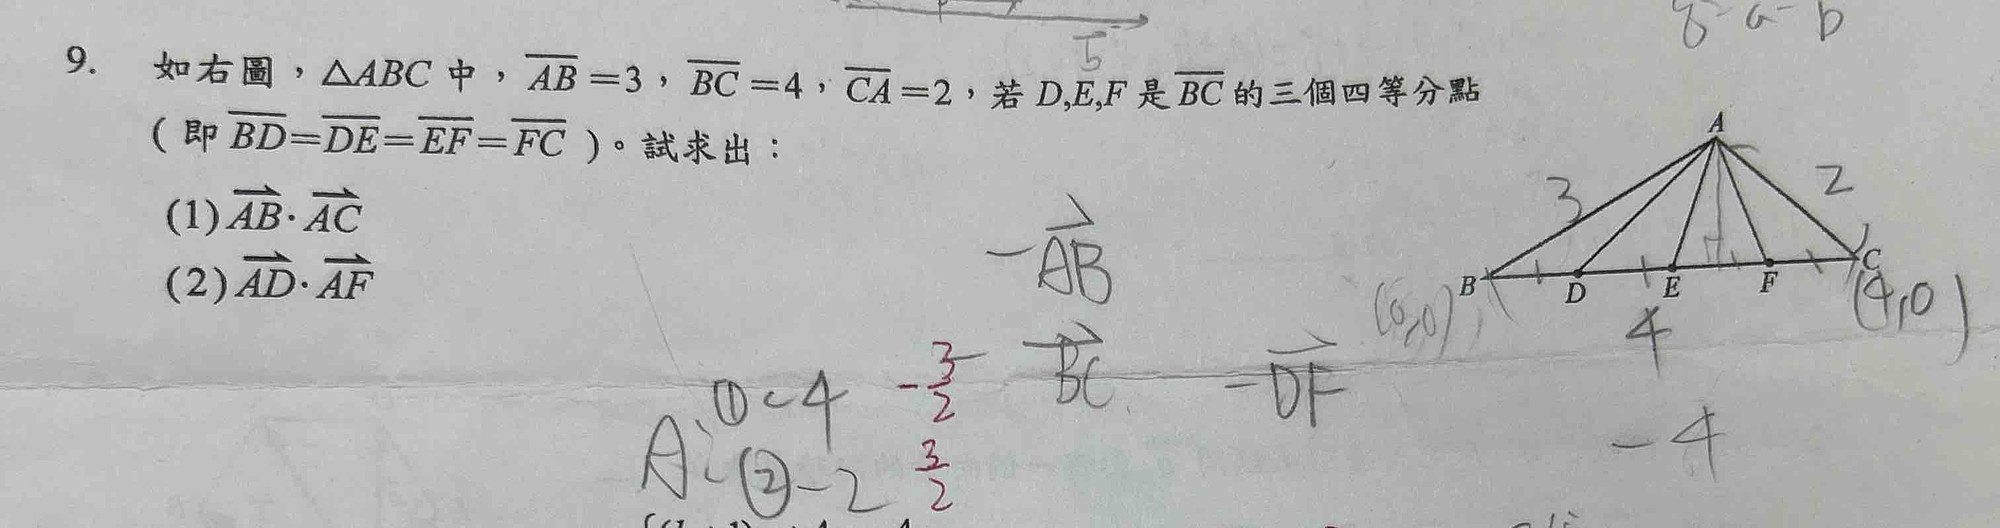 5
8-a-b
9. 如右圖,△ABC 中,AB=3,BC=4,CA=2,若 D,E,F 是 BC 的三個四等分點
(即 BD=DE=EF=FC)。試求出:
(1) AB · AC
(2) AD · AF
A
3
2
B
D
E
F
C
(0,0)
4
(4,0)
-AB
BC
-DF
-4
A: ①-4 -3/2
②-2 3/2